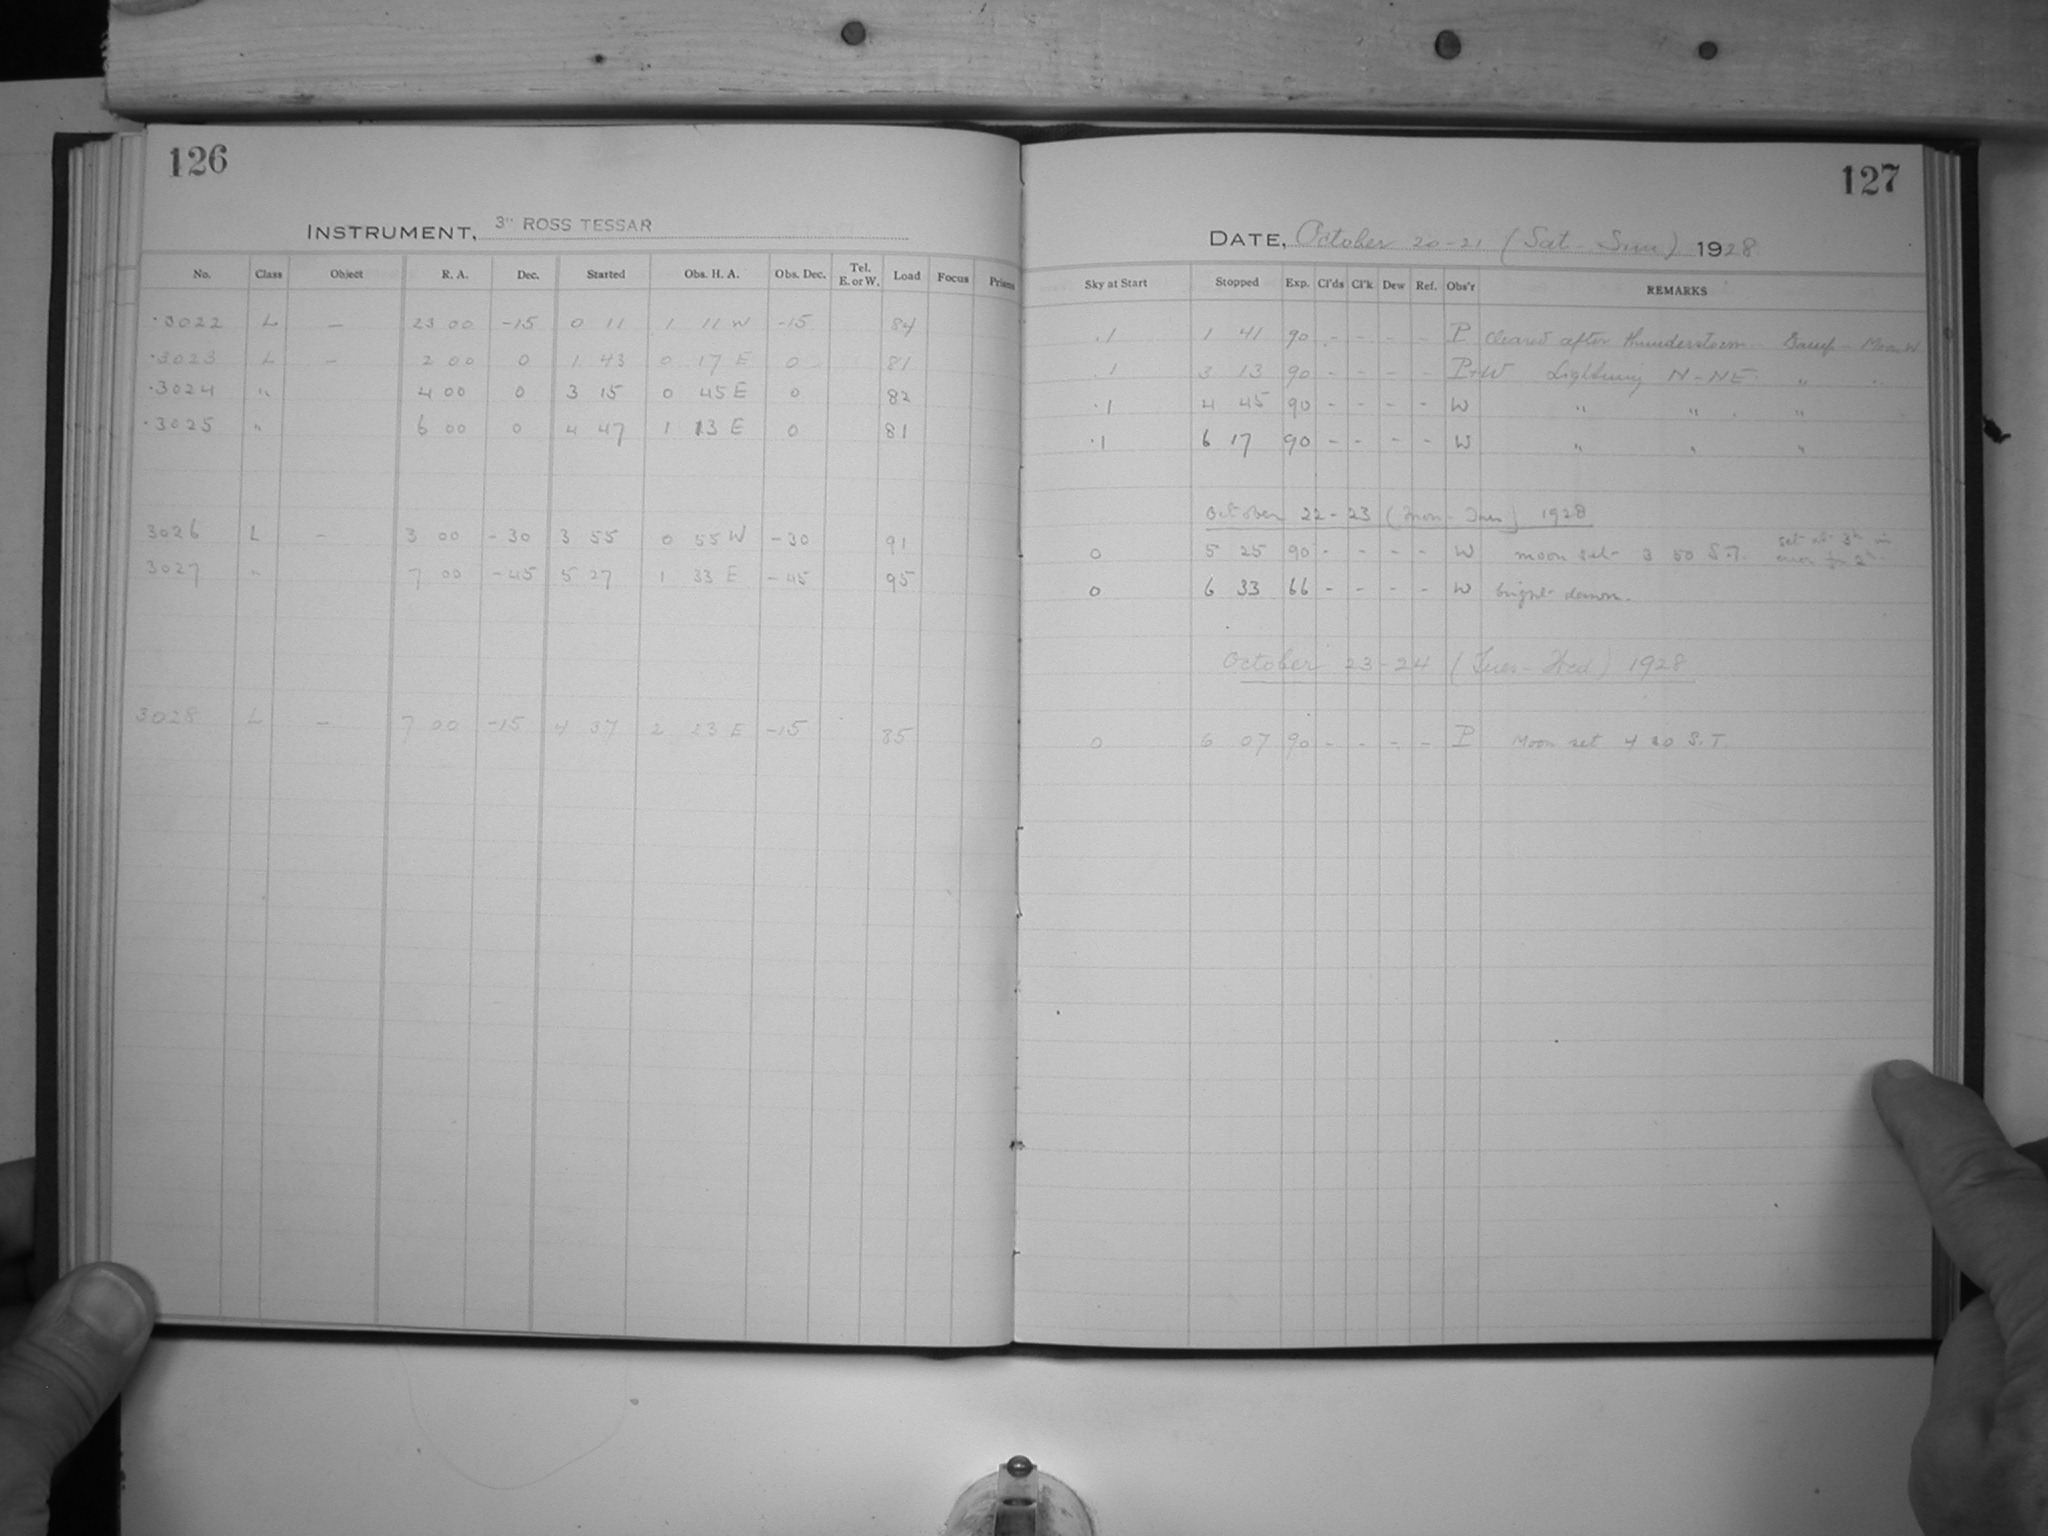 126
INSTRUMENT, 3" ROSS TESSAR
No. Class Object R. A. Dec. Started Obs. H. A. Obs. Dec. Tel. E. or W. Load Focus Prisms
·3022 L – 23 00 -15 0 11 1 11 W -15 84
·3023 L – 2 00 0 1 43 0 17 E 0 81
·3024 " 4 00 0 3 15 0 45 E 0 82
·3025 " 6 00 0 4 47 1 13 E 0 81
3026 L – 3 00 -30 3 55 0 55 W -30 91
3027 " 7 00 -45 5 27 1 33 E -45 95
3028 L – 7 00 -15 4 37 2 23 E -15 85
127
DATE, October 20-21 (Sat - Sun) 1928
Sky at Start Stopped Exp. Cl'ds Cl'k Dew Ref. Obs'r REMARKS
.1 1 41 90 - - - - P Cleared after thunderstorm - Damp - Moon W
.1 3 13 90 - - - - P+W Lightning N-NE " "
.1 4 45 90 - - - - W " " "
.1 6 17 90 - - - - W " " "
October 22-23 (Mon - Tues) 1928
0 5 25 90 - - - - W moon set 3 50 S.T. set at 3h in error for 2h.
0 6 33 66 - - - - W bright dawn.
October 23-24 (Tues - Wed) 1928
0 6 07 90 - - - - P Moon set 4 30 S.T.